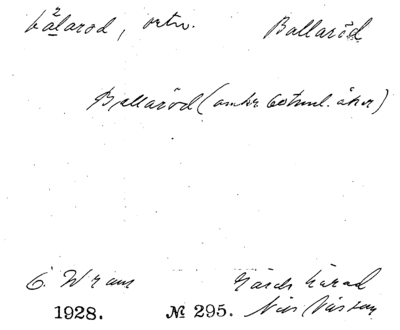 bålarod, ortn. Ballaröd
Ballaröd (omkr 60 tunnl. åker)
Ö. Wram Gärds härad
1928. № 295. Nils Nilsson